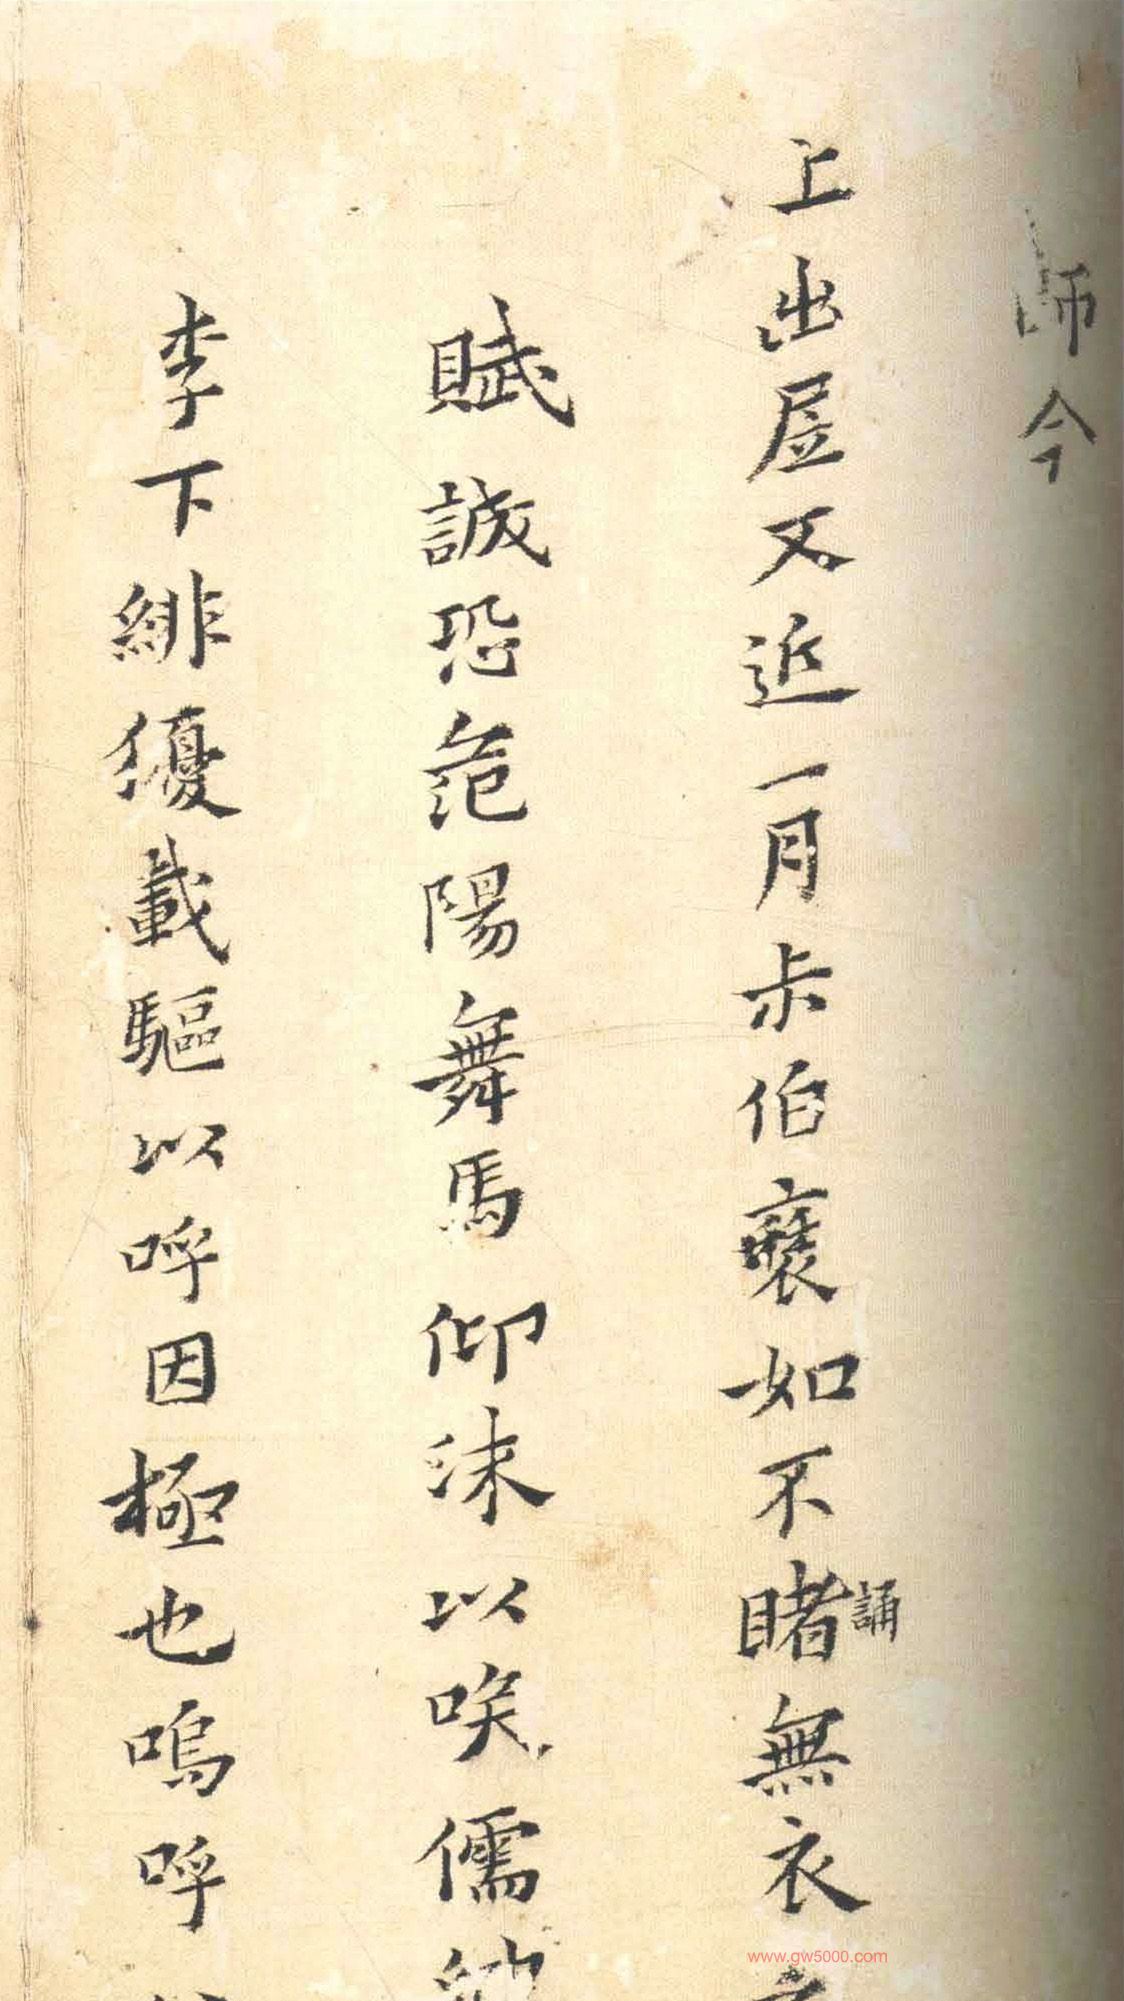 師今
上出居又近一月尗伯襃如不睹誦無衣
賦誠恐范陽舞馬仰沫以唉儒
李下緋優載驅以呼因極也嗚呼
www.gw5000.com